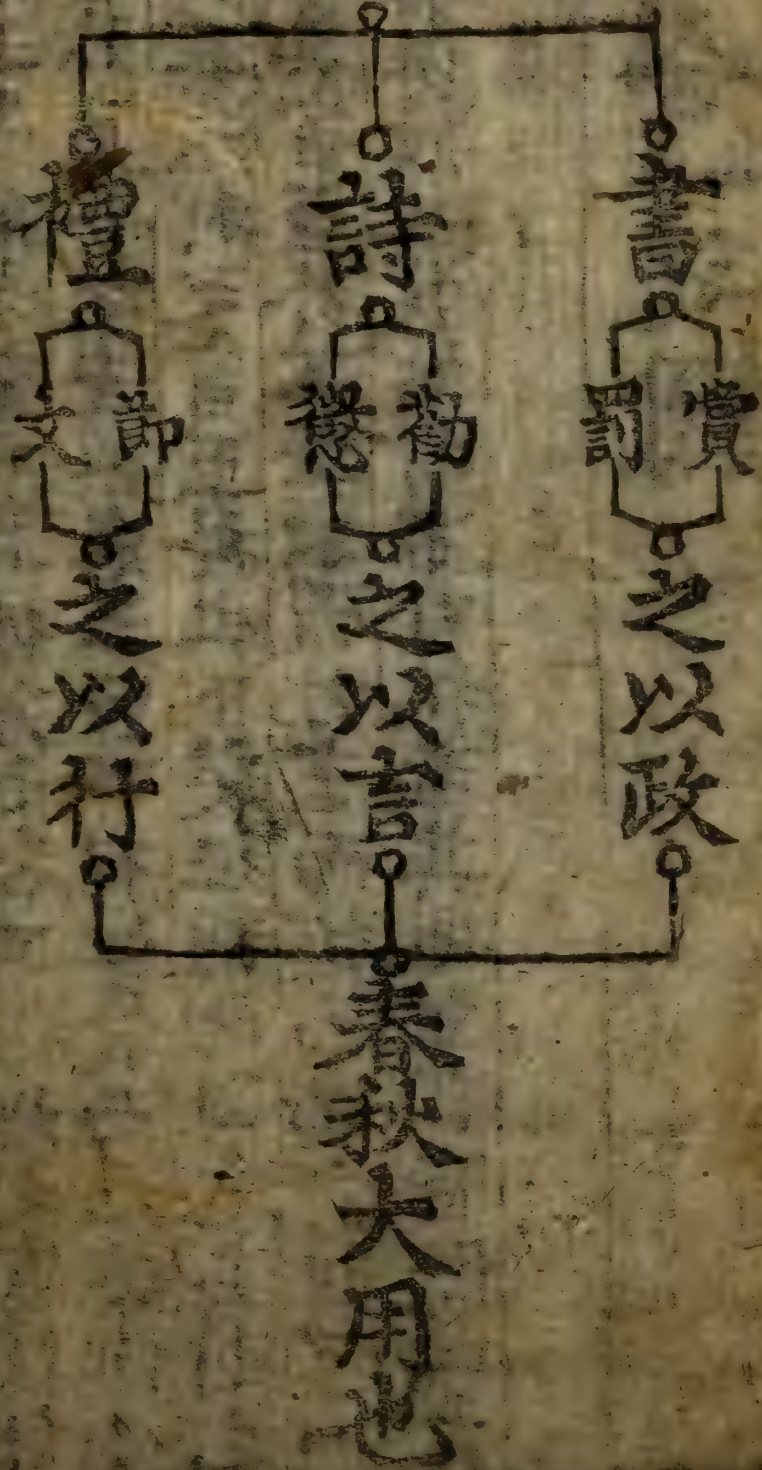 書
賞
罰
之以政
詩
勸
懲
之以言
禮
節
文
之以行
春秋大用也